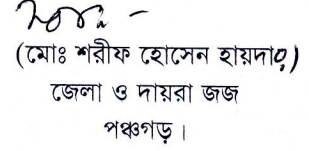 (মোঃ শরীফ হোসেন হায়দার)
জেলা ও দায়রা জজ
পঞ্চগড় ।